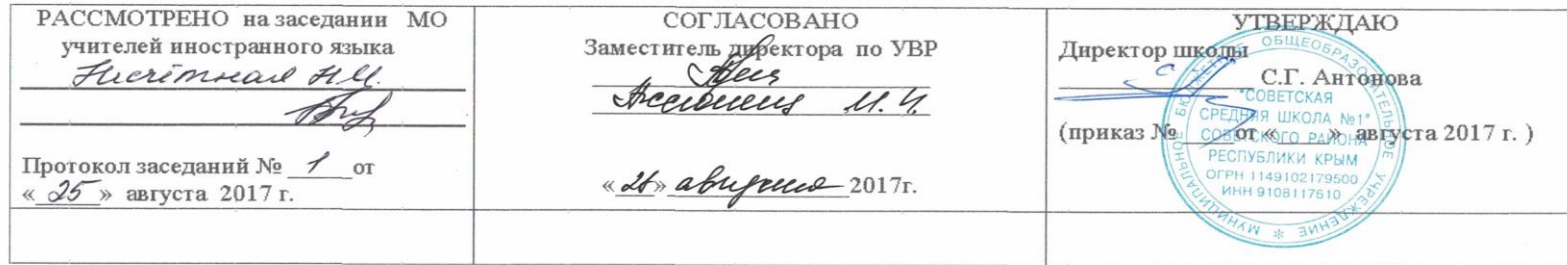 РАССМОТРЕНО на заседании МО
учителей иностранного языка
Н.И.
Протокол заседаний № 1 от
«25» августа 2017 г.
СОГЛАСОВАНО
Заместитель директора по УВР
И.
августа 2017г.
УТВЕРЖДАЮ
Директор школы
С.Г. Антонова
(приказ № от « » августа 2017 г. )
МУНИЦИПАЛЬНОЕ БЮДЖЕТНОЕ ОБЩЕОБРАЗОВАТЕЛЬНОЕ УЧРЕЖДЕНИЕ *
"СОВЕТСКАЯ
СРЕДНЯЯ ШКОЛА №1"
СОВЕТСКОГО РАЙОНА
РЕСПУБЛИКИ КРЫМ
ОГРН 1149102179500
ИНН 9108117610